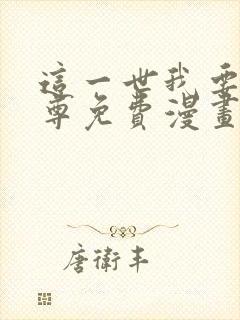 這一世我要
尊免費漫畫
唐衛丰